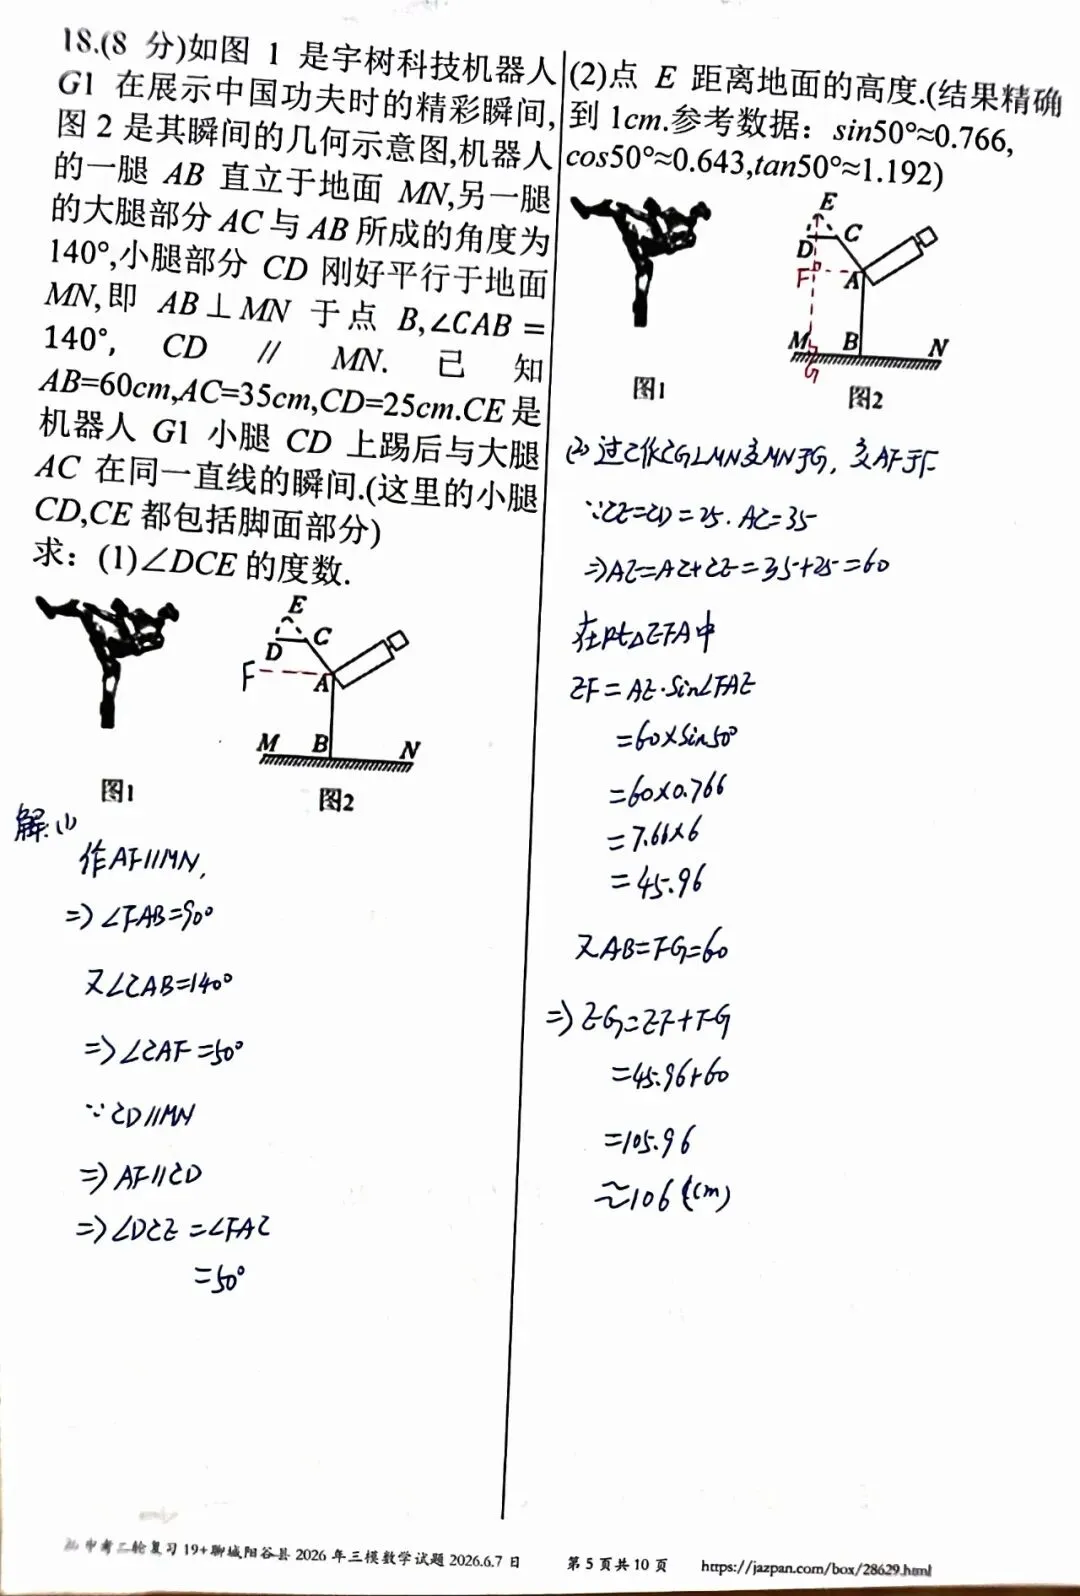 18.(8 分)如图 1 是宇树科技机器人
G1 在展示中国功夫时的精彩瞬间,
图 2 是其瞬间的几何示意图,机器人
的一腿 AB 直立于地面 MN,另一腿
的大腿部分 AC 与 AB 所成的角度为
140°,小腿部分 CD 刚好平行于地面
MN,即 AB⊥MN 于点 B,∠CAB=
140°, CD // MN. 已 知
AB=60cm,AC=35cm,CD=25cm.CE 是
机器人 G1 小腿 CD 上踢后与大腿
AC 在同一直线的瞬间.(这里的小腿
CD,CE 都包括脚面部分)
求：(1)∠DCE 的度数.
E
D
C
F
A
M
B
N
图1
图2
解:(1)
作AF//MN,
=>∠FAB=90°
又∠CAB=140°
=>∠CAF=50°
∵CD//MN
=>AF//CD
=>∠DCE=∠FAC
=50°
(2)点 E 距离地面的高度.(结果精确
到 1cm.参考数据：sin50°≈0.766,
cos50°≈0.643,tan50°≈1.192)
E
D
C
F
A
M
B
N
G
图1
图2
(2)过E作EG⊥MN交MN于G, 交AF于F
∵CE=CD=25. AC=35
=>AE=AC+CE=35+25=60
在Rt△EFA中
EF=AE·Sin∠FAE
=60×Sin50°
=60×0.766
=7.66×6
=45.96
又AB=FG=60
=>EG=EF+FG
=45.96+60
=105.96
≈106(cm)
中考二轮复习 19+聊城阳谷县 2026 年三模数学试题 2026.6.7 日
第 5 页共 10 页
https://jazpan.com/box/28629.html